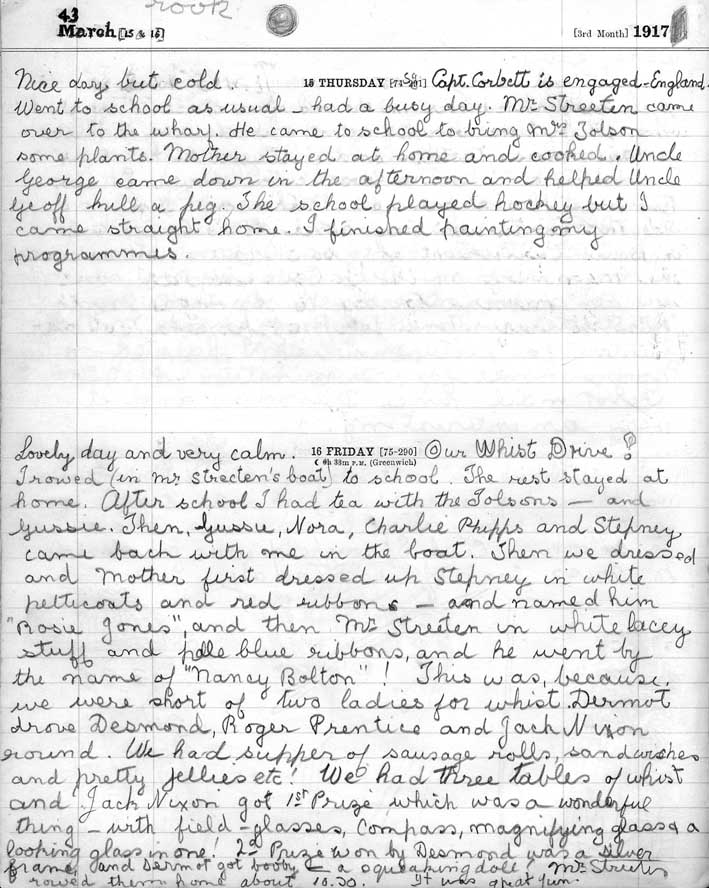 rook
43
March [15 & 16] [3rd Month] 1917
Nice day but cold. 15 THURSDAY [74-291] Capt. Corbett is engaged - England.
Went to school as usual - had a busy day. Mr Streeten came
over to the wharf. He came to school to bring Mrs Tolson
some plants. Mother stayed at home and cooked. Uncle
George came down in the afternoon and helped Uncle
Geoff kill a pig. The school played hockey but I
came straight home. I finished painting my
programmes.
Lovely day and very calm. 16 FRIDAY [75-290] Our Whist Drive!
33m P.M. (Greenwich)
I rowed (in Mr Streeten's boat) to school. The rest stayed at
home. After school I had tea with the Tolsons — and
Gussie. Then, Gussie, Nora, Charlie Phipps and Stepney
came back with me in the boat. Then we dressed
and Mother first dressed up Stepney in white
petticoats and red ribbons - and named him
"Rosie Jones", and then Mr Streeten in white lacey
stuff and pale blue ribbons, and he went by
the name of "Nancy Bolton"! This was, because,
we were short of two ladies for whist. Dermot
drove Desmond, Roger Prentice and Jack Nixon
round. We had supper of sausage rolls, sandwishes
and pretty jellies etc! We had three tables of whist
and Jack Nixon got 1st Prize which was a wonderful
thing - with field-glasses, compass, magnifying glass & a
looking glass in one! 2nd Prize won by Desmond was a silver
frame, and Dermot got booby - a squeaking doll. Mr Streeten
rowed them home about 10.30. It was great fun.